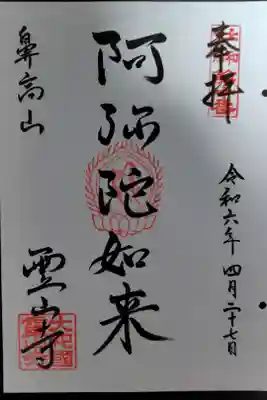 奉拝
令和六年四月二十七日
阿弥陀如来
鼻高山
霊山寺